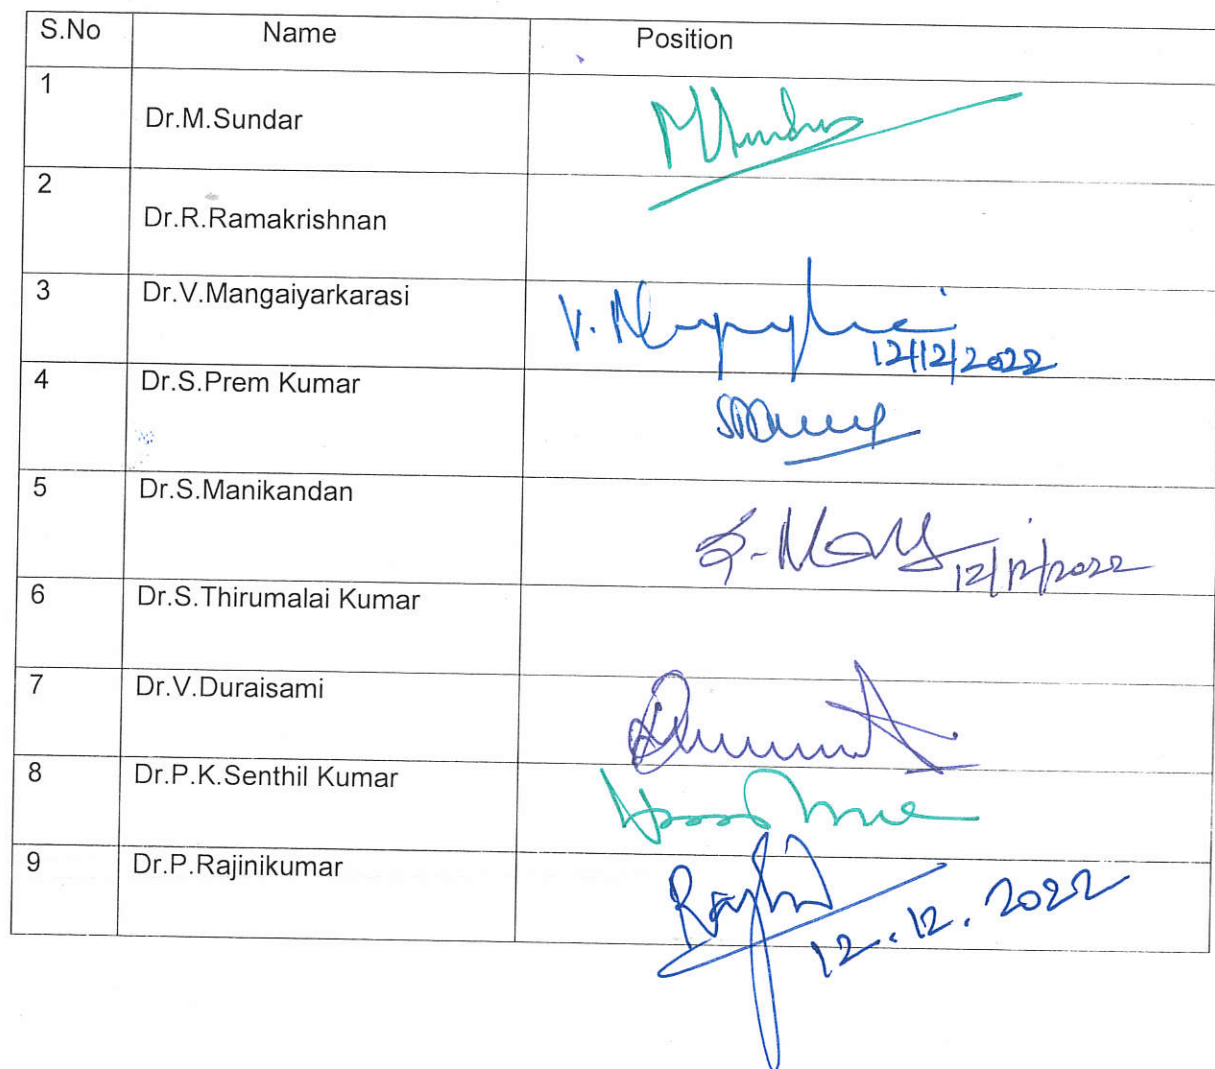 S.No Name Position
1 Dr.M.Sundar
2 Dr.R.Ramakrishnan
3 Dr.V.Mangaiyarkarasi
12/12/2022
4 Dr.S.Prem Kumar
5 Dr.S.Manikandan
12/12/2022
6 Dr.S.Thirumalai Kumar
7 Dr.V.Duraisami
8 Dr.P.K.Senthil Kumar
9 Dr.P.Rajinikumar
12.12.2022